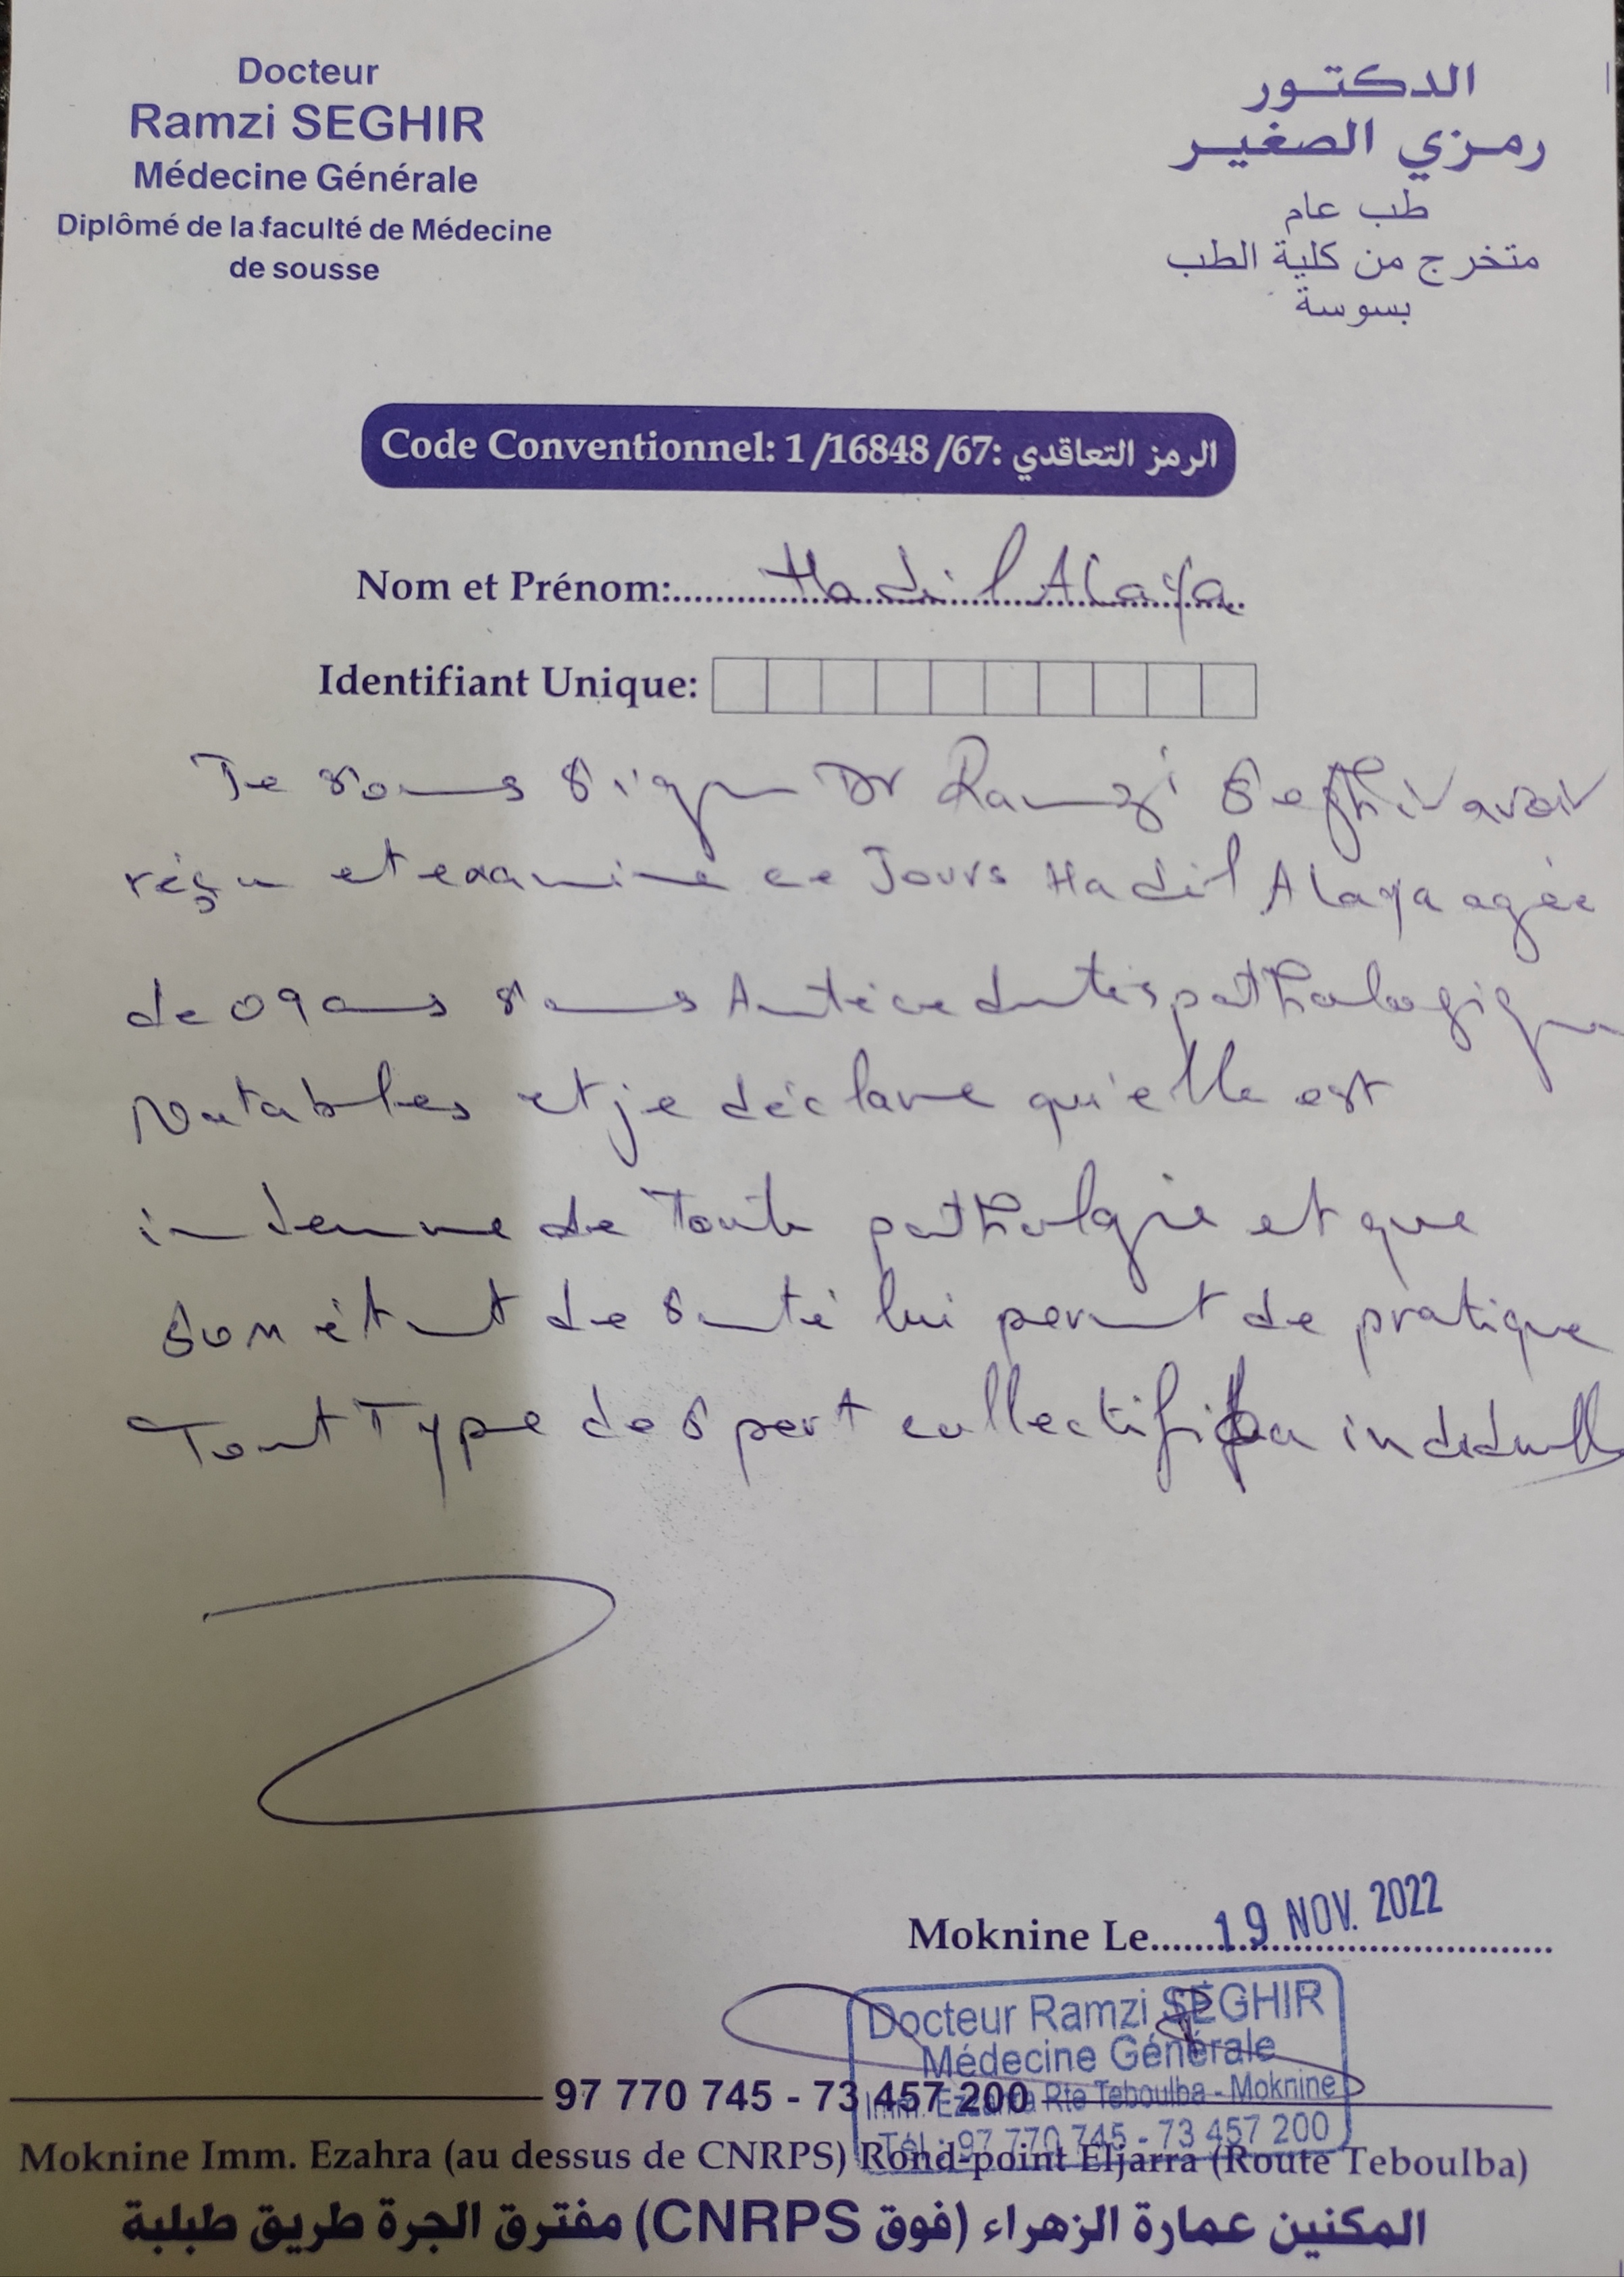 Docteur
Ramzi SEGHIR
Médecine Générale
Diplômé de la faculté de Médecine
de sousse
الدكتور
رمزي الصغير
طب عام
متخرج من كلية الطب
بسوسة
Code Conventionnel: 1/16848/67: الرمز التعاقدي
Nom et Prénom: Hadil Alaya
Identifiant Unique:
Je sous signe Dr Ramzi Seghir avoir
réçu et examine ce Jours Hadil Alaya agée
de 09 ans sans Antécedentes pathologique
Notables et je déclare qu'elle est
indemne de Toute pathologie et que
son état de santé lui permet de pratique
Tout Type de sport collectif ou
Moknine Le 19 NOV. 2022
Docteur Ramzi SEGHIR
Médecine Générale
Imm. Ezzahra Rte Teboulba - Moknine
Tél.: 97 770 745 - 73 457 200
97 770 745 - 73 457 200
Moknine Imm. Ezahra (au dessus de CNRPS) Rond-point Eljarra (Route Teboulba)
المكنين عمارة الزهراء (فوق CNRPS) مفترق الجرة طريق طبلبة